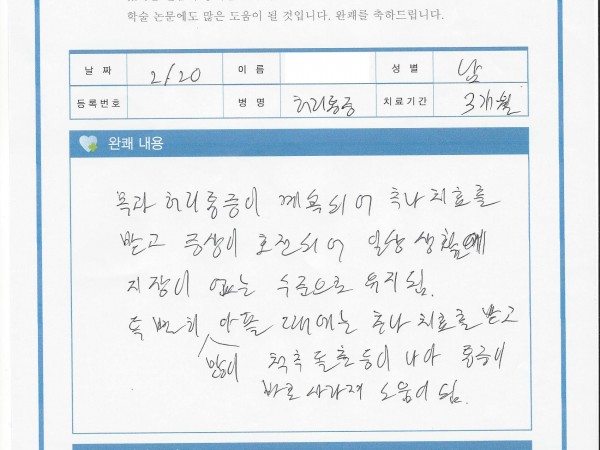 학술 논문에도 많은 도움이 될 것입니다. 완쾌를 축하드립니다.
날 짜 2/20 이 름 성 별 남
등록번호 병 명 허리통증 치료기간 3개월
완쾌 내용
목과 허리통증이 계속되어 추나치료를
받고 증상이 호전되어 일상 생활에
지장이 없는 수준으로 유지됨.
특별히 많이 아플 때에는 추나치료를 받고
척추 돌출 등이 나아 통증이
바로 사라져 도움이 됨.